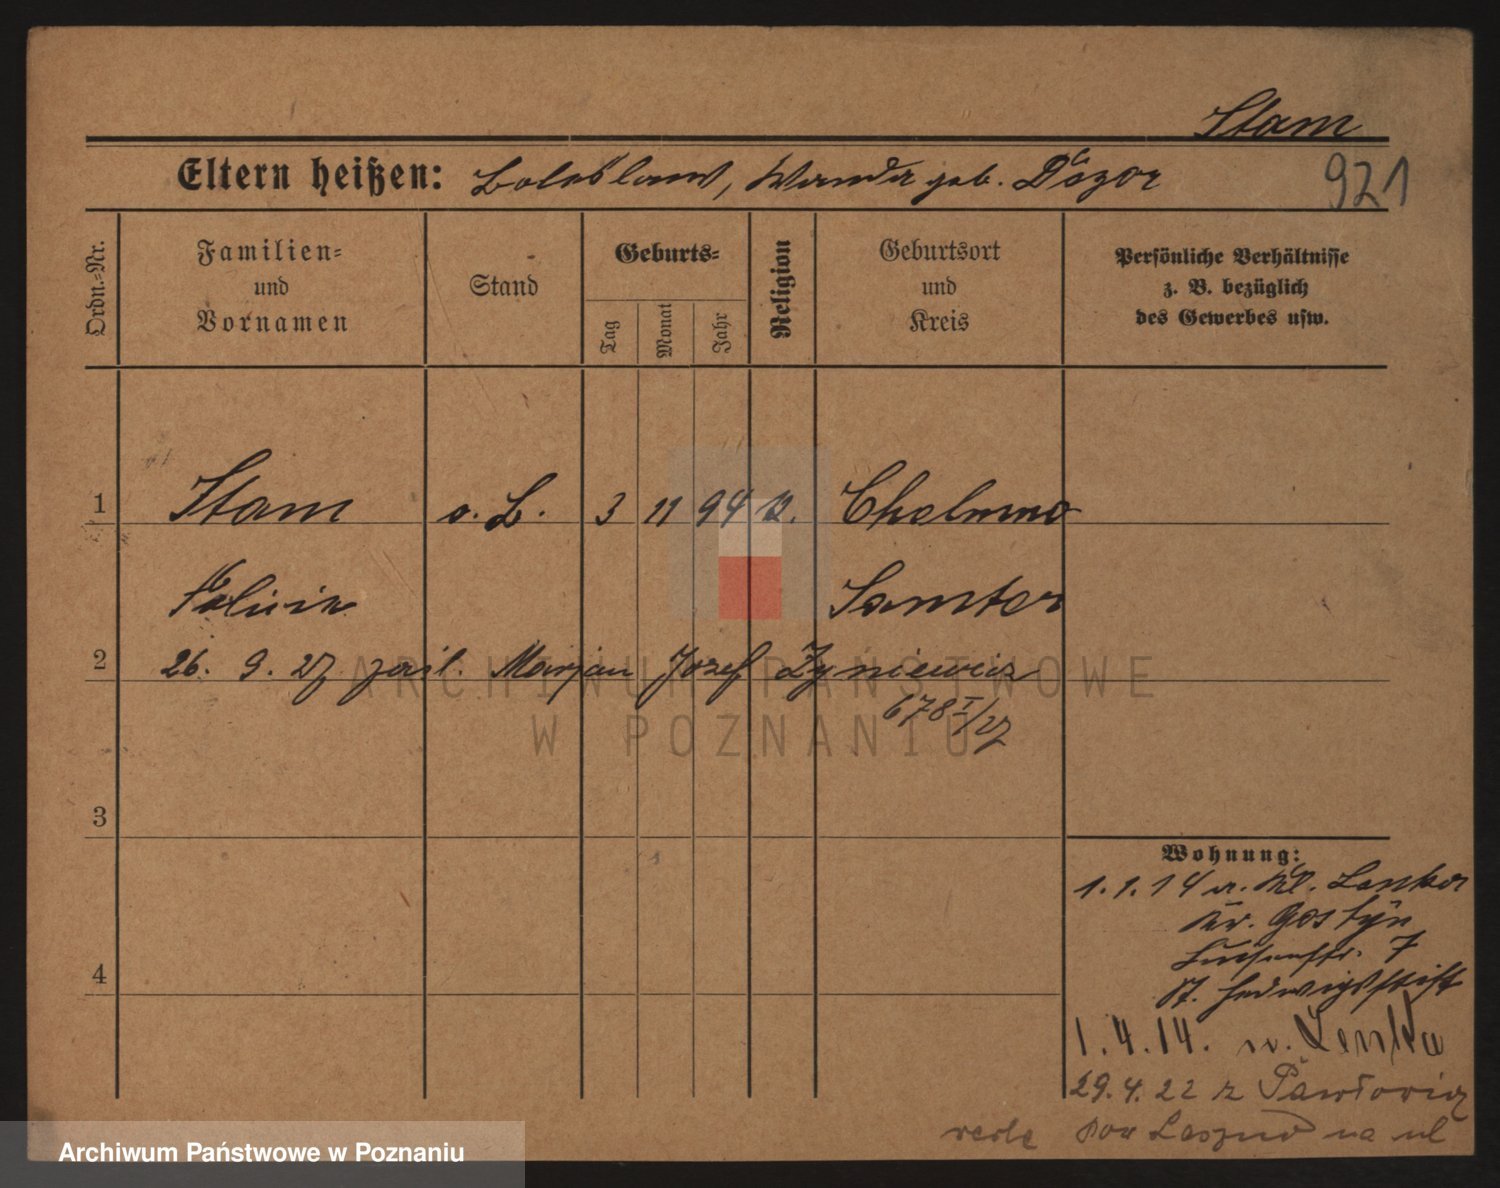 Stam
Eltern heißen: Boleslaus, Wanda geb. Dózor
921
Ordn.-Nr.
Familien-
und
Vornamen
Stand
Geburts-
Tag
Monat
Jahr
Religion
Geburtsort
und
Kreis
Persönliche Verhältnisse
z. B. bezüglich
des Gewerbes usw.
1
Stam
o. B.
3
11
94
k.
Cholmno
Felicia
Samter
2
26. 9. 27 zaśl. Marjan Józef Zyniewicz
678 I/27
3
4
Wohnung:
1.1.14 v. Kl. Lenka
Kr. Gostyn
Luisenstr. 7
St. Hedwigsstift
1.4.14. n. Lenka
29.4.22 z Pawłowic
pow Leszno na ul
ARCHIWUM PAŃSTWOWE
W POZNANIU
Archiwum Państwowe w Poznaniu